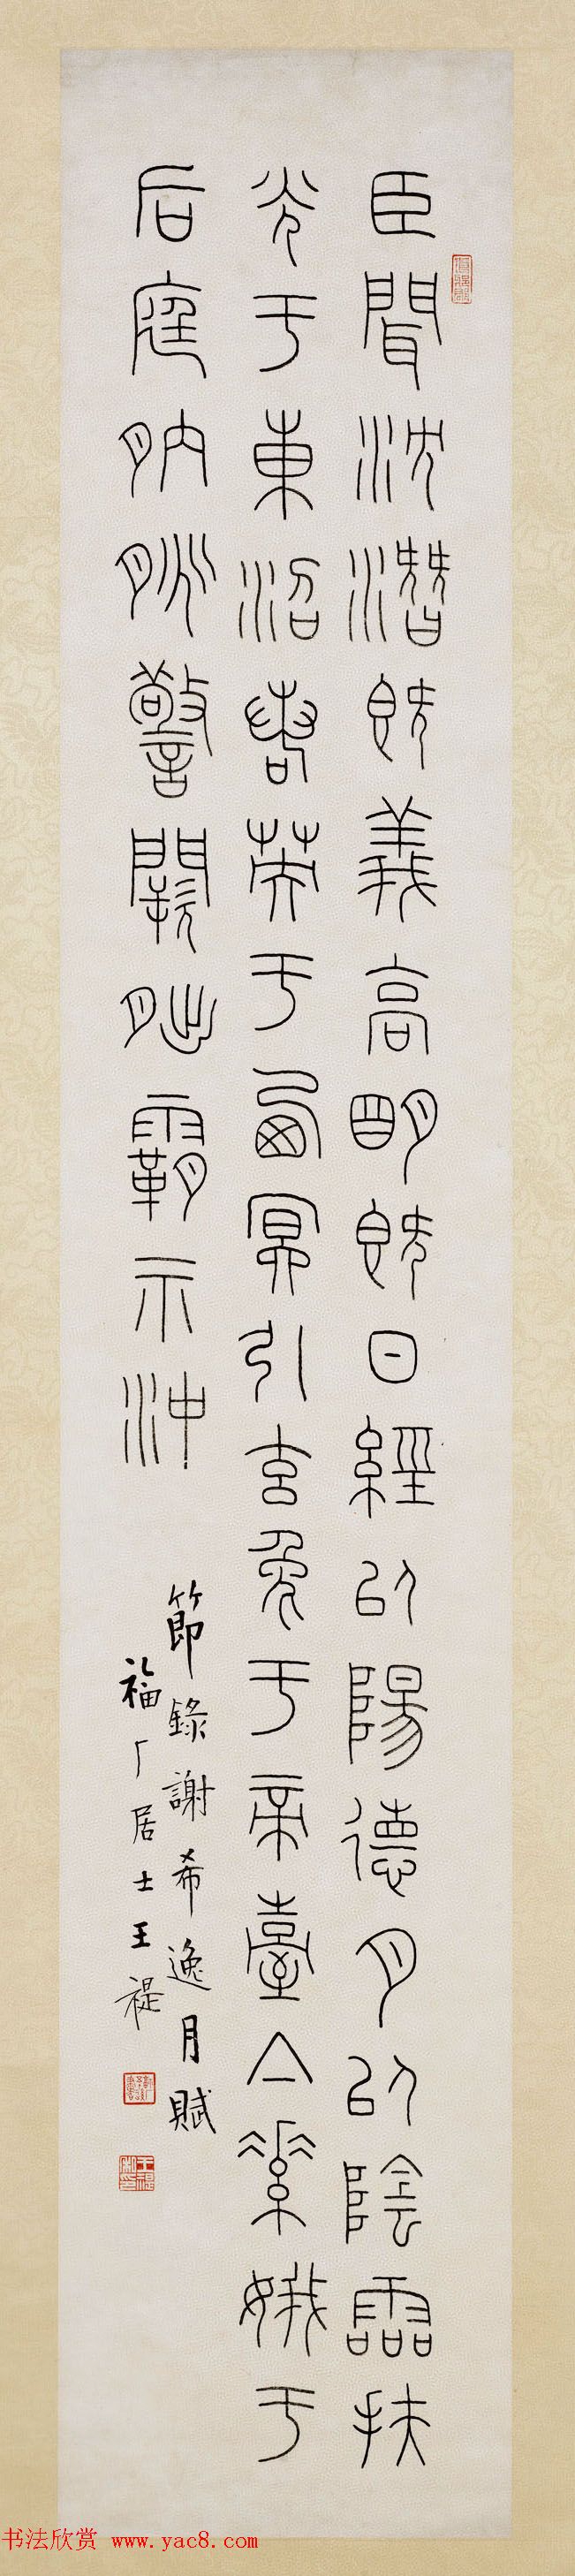 臣聞沈潛既義高明既日經以陽德月以陰靈扶
光于東沼若英于西冥引玄兔于帝臺亼素娥于
后庭朒朓警闕朏霸示沖
節錄謝希逸月賦
福厂居士王禔
书法欣赏 www.yac8.com